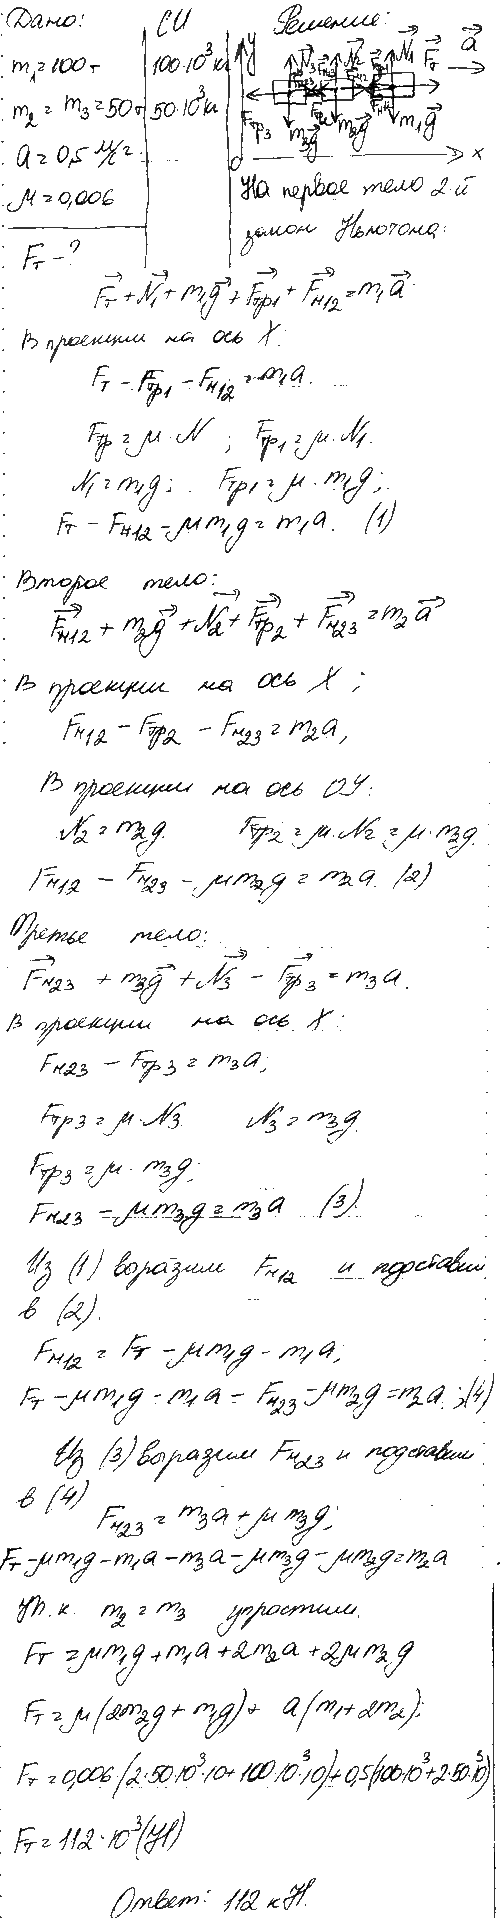 Дано: СИ Решение:
m₁=100т 100·10³кг
m₂=m₃=50т 50·10³кг
a=0,5 м/с²
μ=0,006
Fт-?
y N₃ N₂ N₁ Fт a
Fтр3 m₃g m₂g m₁g
O x
На первое тело 2-й
закон Ньютона:
Fт+N₁+m₁g+Fтр1+Fн12=m₁a
В проекции на ось X:
Fт-Fтр1-Fн12=m₁a.
Fтр=μ·N ; Fтр1=μ·N₁.
N₁=m₁g; Fтр1=μ·m₁g;
Fт-Fн12-μm₁g=m₁a. (1)
Второе тело:
Fн12+m₃g+N₂+Fтр2+Fн23=m₂a
В проекции на ось X;
Fн12-Fтр2-Fн23=m₂a,
В проекции на ось OY:
N₂=m₂g. Fтр2=μ·N₂=μ·m₂g.
Fн12-Fн23-μm₂g=m₂a. (2)
Третье тело:
Fн23+m₃g+N₃-Fтр3=m₃a.
В проекции на ось X:
Fн23-Fтр3=m₃a;
Fтр3=μ·N₃ N₃=m₃g.
Fтр3=μ·m₃g;
Fн23-μm₃g=m₃a (3).
Из (1) воразим Fн12 и подставим
в (2).
Fн12=Fт-μm₁g-m₁a;
Fт-μm₁g-m₁a-Fн23-μm₂g=m₂a.;(4)
Из (3) воразим Fн23 и подставим
в (4)
Fн23=m₃a+μm₃g;
Fт-μm₁g-m₁a-m₃a-μm₃g-μm₂g=m₂a
Т.к. m₂=m₃ упростим.
Fт=μm₁g+m₁a+2m₂a+2μm₂g
Fт=μ(2m₂g+m₁g)+a(m₁+2m₂);
Fт=0,006(2·50·10³·10+100·10³·10)+0,5(100·10³+2·50·10³)
Fт=112·10³(Н)
Ответ: 112 кН.